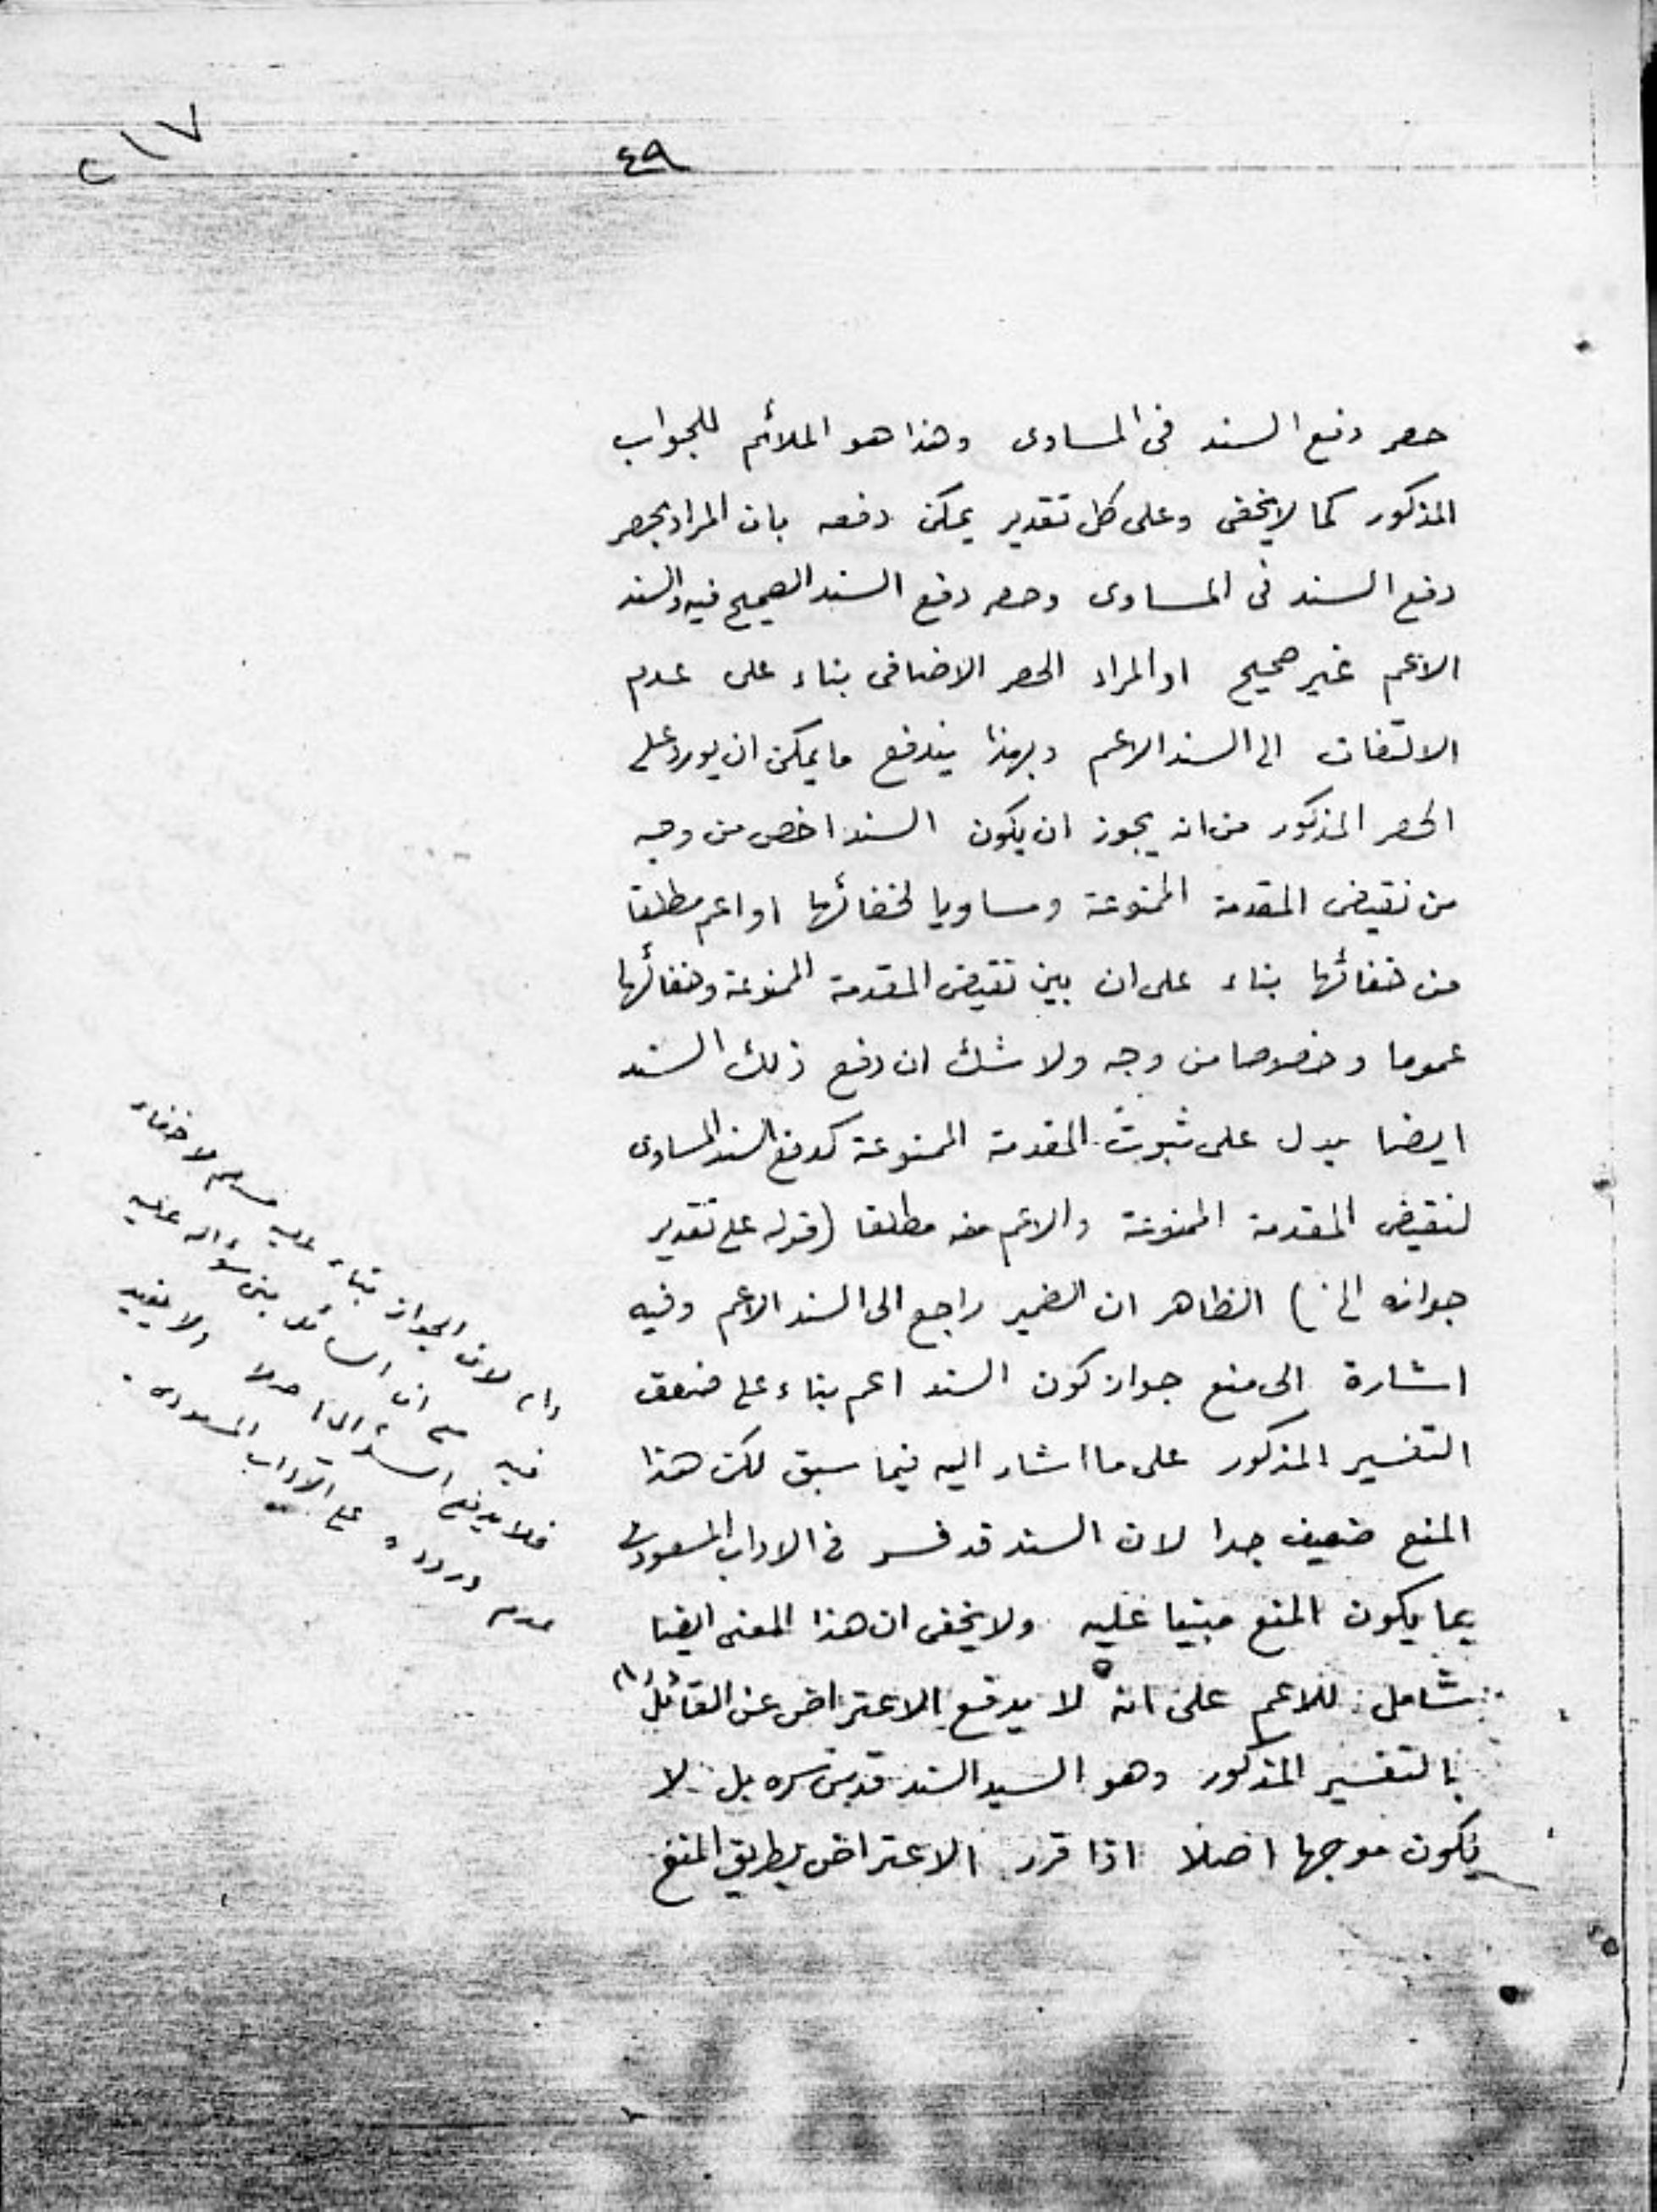 ٤٩
٢١٧
حصر دفع السند فى المساوى وهذا هو الملائم للجواب
المذكور كما لا يخفى وعلى كل تقدير يمكن دفعه بان المراد بحصر
دفع السند فى المساوى وحصر دفع السند الصحيح فيه والسند
الاعم غير صحيح او المراد الحصر الاضافى بناء على عدم
الالتفات الى السند الاعم وبهذا يندفع ما يمكن ان يورد على
الحصر المذكور من انه يجوز ان يكون السند اخص من وجه
من نقيض المقدمة الممنوعة ومساويا لخفائها او اعم مطلقا
من خفائها بناء على ان بين نقيض المقدمة الممنوعة وخفائها
عموما وخصوصا من وجه ولا شك ان دفع ذلك السند
ايضا يدل على ثبوت المقدمة الممنوعة كدفع السند المساوى
لنقيض المقدمة الممنوعة والاعم منه مطلقا (قوله على تقدير
جوازه الخ) الظاهر ان الضمير راجع الى السند الاعم وفيه
اشارة الى منع جواز كون السند اعم بناء على ضعف
التفسير المذكور على ما اشار اليه فيما سبق لكن هذا
المنع ضعيف جدا لان السند قد فسر فى الاداب المسعودى
بما يكون المنع مبنيا عليه ولا يخفى ان هذا المعنى ايضا
شامل للاعم على انه لا يدفع الاعتراض عن القائل
بالتفسير المذكور وهو السيد السند قدس سره بل لا
يكون موجها اصلا اذا قرر الاعتراض بطريق المنع
لان الجواز بناء عليه مسلم لا خفاء
فيه على ان السائل بنى سؤاله عليه
فلا يدفع السؤال اصلا ولا يفيد
عدم وروده على الآداب المسعودى